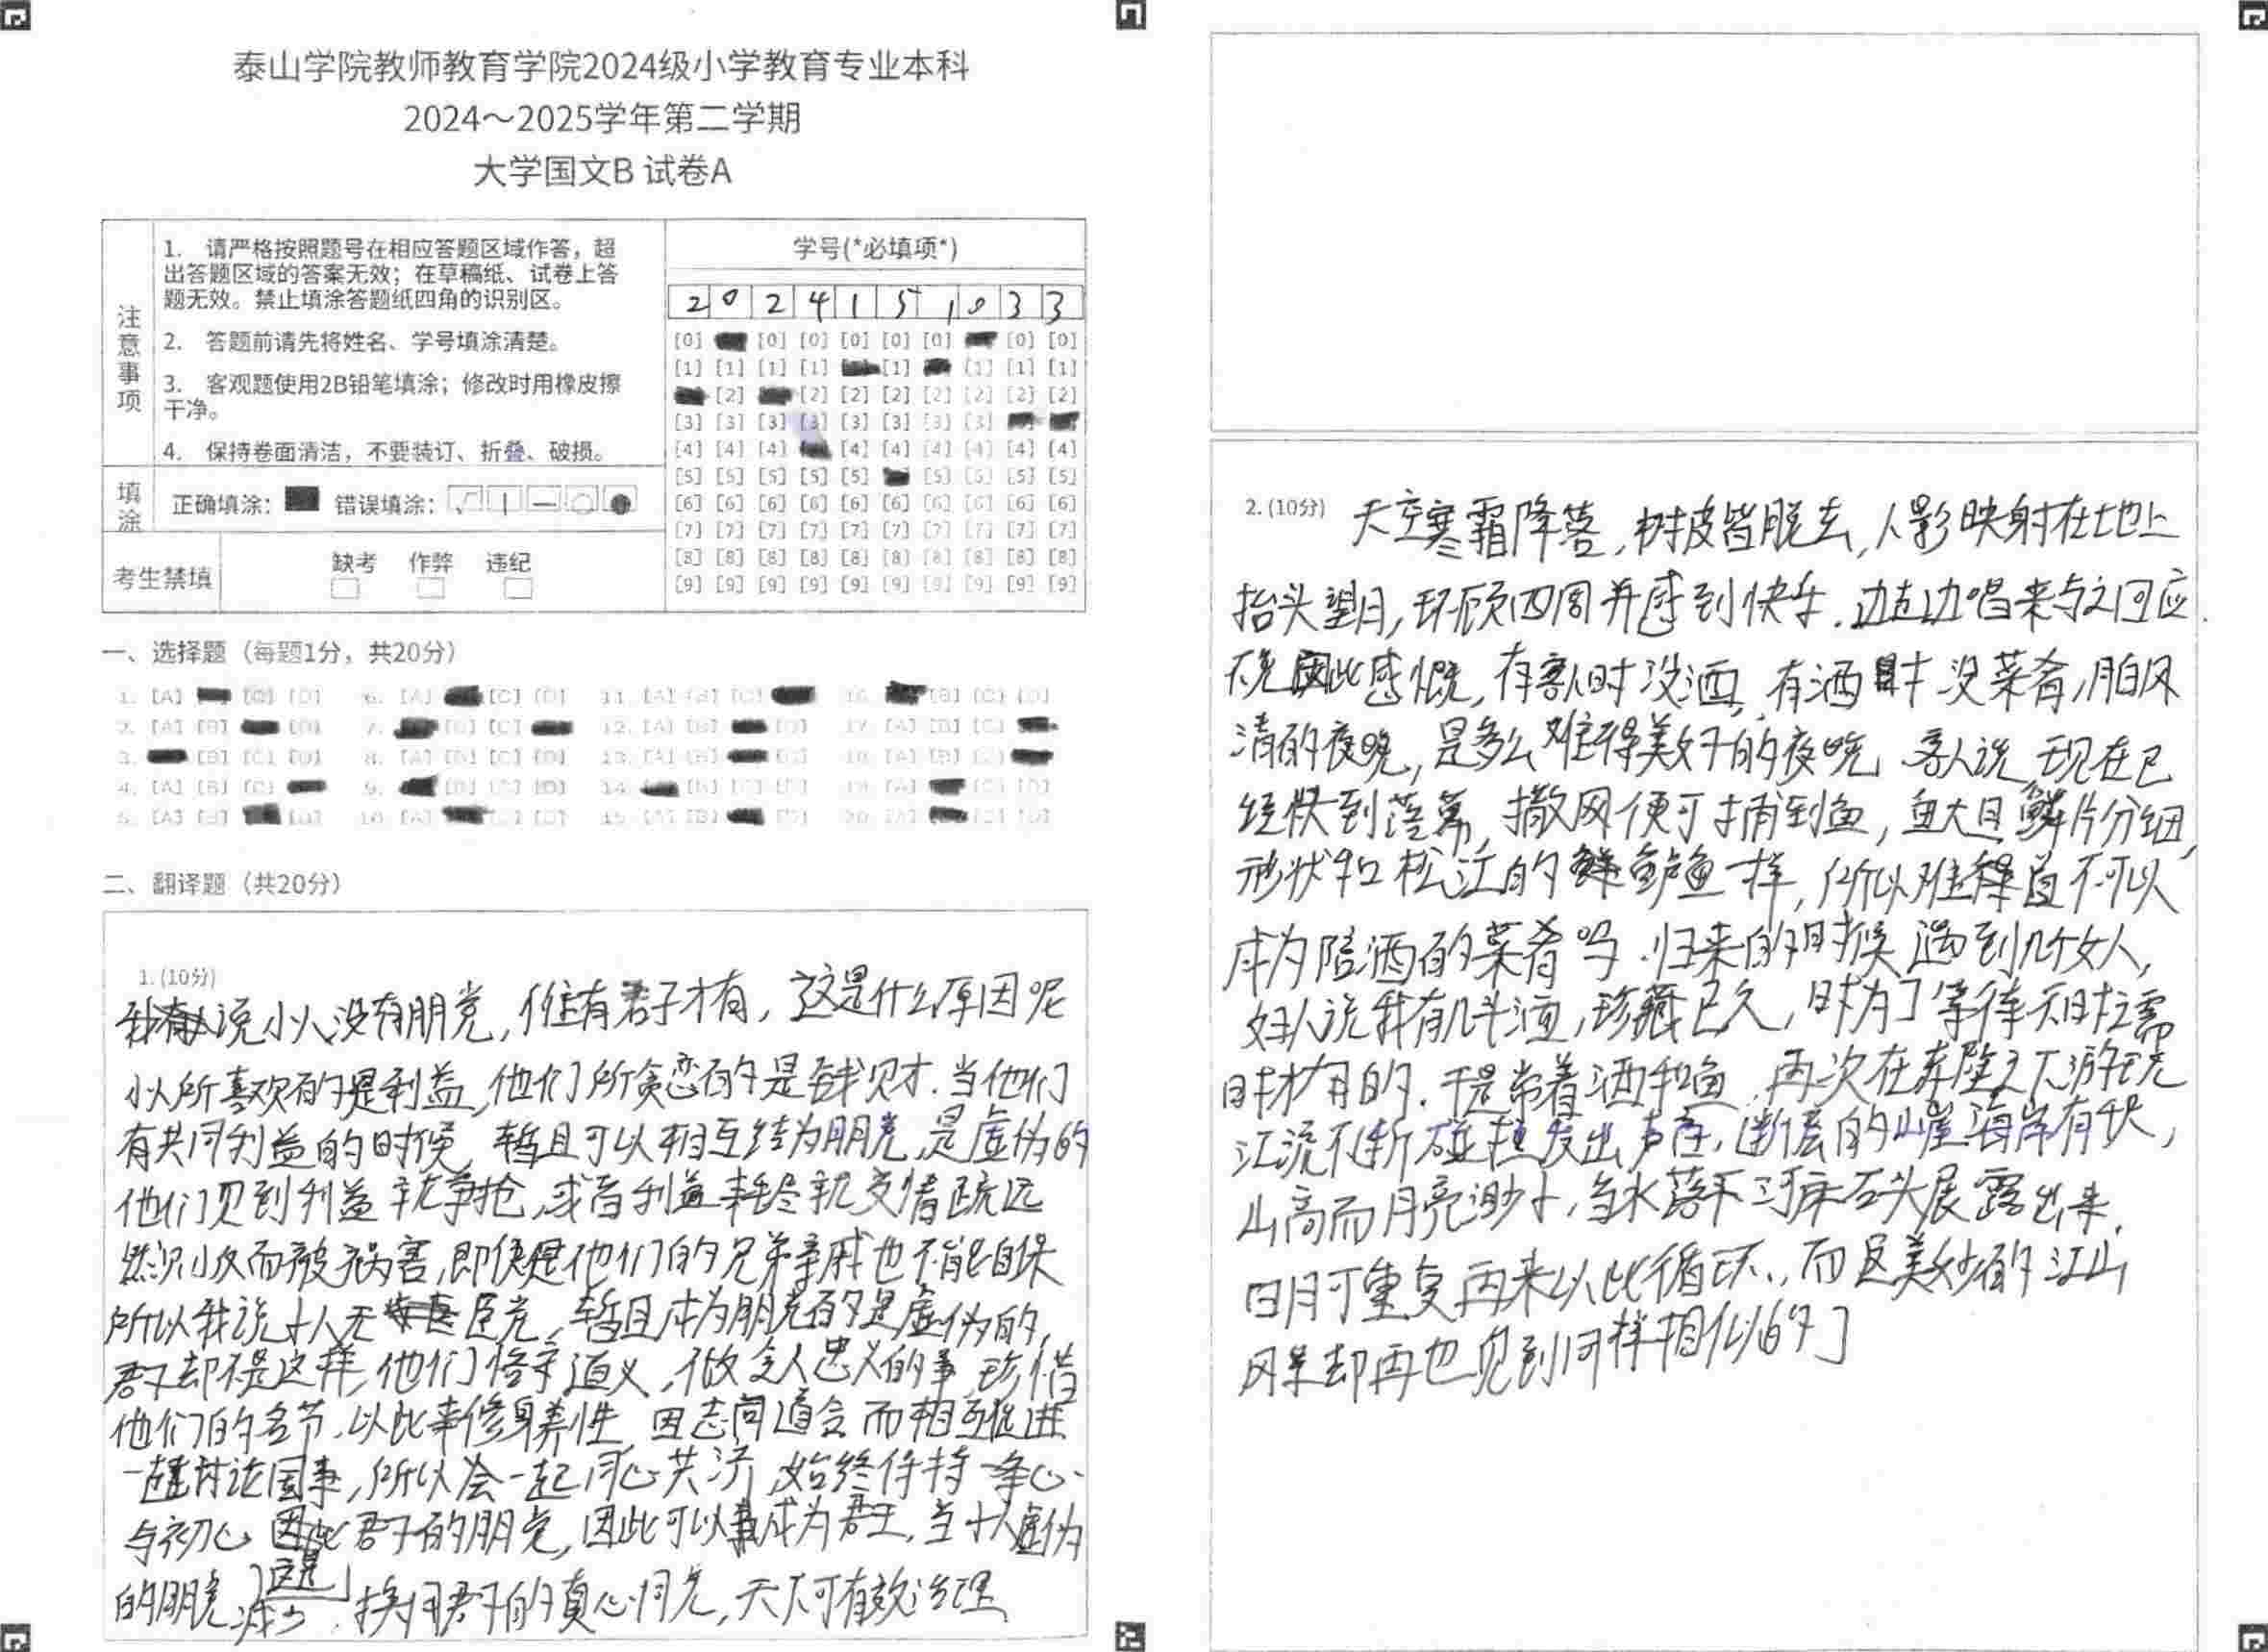 泰山学院教师教育学院2024级小学教育专业本科
2024～2025学年第二学期
大学国文B 试卷A
注意事项
1. 请严格按照题号在相应答题区域作答，超
出答题区域的答案无效；在草稿纸、试卷上答
题无效。禁止填涂答题纸四角的识别区。
2. 答题前请先将姓名、学号填涂清楚。
3. 客观题使用2B铅笔填涂；修改时用橡皮擦
干净。
4. 保持卷面清洁，不要装订、折叠、破损。
填涂 正确填涂： 错误填涂：
考生禁填 缺考 作弊 违纪
学号(*必填项*)
2 0 2 4 1 5 1 0 3 3
[0] [0] [0] [0] [0] [0] [0] [0]
[1] [1] [1] [1] [1] [1] [1] [1]
[2] [2] [2] [2] [2] [2] [2] [2]
[3] [3] [3] [3] [3] [3] [3] [3]
[4] [4] [4] [4] [4] [4] [4] [4] [4]
[5] [5] [5] [5] [5] [5] [5] [5] [5]
[6] [6] [6] [6] [6] [6] [6] [6] [6] [6]
[7] [7] [7] [7] [7] [7] [7] [7] [7] [7]
[8] [8] [8] [8] [8] [8] [8] [8] [8] [8]
[9] [9] [9] [9] [9] [9] [9] [9] [9] [9]
一、选择题（每题1分，共20分）
1. [A] [C] [D] 6. [A] [C] [D] 11. [A] [B] [C] 16. [B] [C] [D]
2. [A] [B] [D] 7. [B] [C] 12. [A] [B] [D] 17. [A] [B] [C]
3. [B] [C] [D] 8. [A] [B] [C] [D] 13. [A] [B] [D] 18. [A] [B] [C]
4. [A] [B] [C] 9. [B] [C] [D] 14. [B] [C] [D] 19. [A] [C] [D]
5. [A] [B] [D] 10. [A] [C] [D] 15. [A] [B] [D] 20. [A] [C] [D]
二、翻译题（共20分）
1. (10分)
说小人没有朋党，惟有君子才有，这是什么原因呢
小人所喜欢的是利益，他们所贪恋的是钱财.当他们
有共同利益的时候，暂且可以相互结为朋党，是虚伪的
他们见到利益就争抢，或者利益耗尽就交情疏远
然则小反而被祸害，即使是他们的兄弟亲戚也不能自保
所以我说小人无 朋党，暂且成为朋党的是虚伪的，
君子却不是这样，他们恪守道义，做令人忠义的事，珍惜
他们的名节，以此来修身养性，因志同道合而相互促进
一起讨论国事，所以会一起同心共济，始终保持一条心
与初心 因此君子的朋党，因此可以成为君王，当小人虚伪
的朋党 这是 减少. 换用君子的真心同党，天下可有效治理
2. (10分) 天空寒霜降落，树皮皆脱去，人影映射在地上
抬头望月，环顾四周并感到快乐.边走边唱来与之回应.
不免因此感慨，有客人时没酒，有酒时没菜肴，月白风
清的夜晚，是多么难得美好的夜晚 客人说，现在已
经快到落幕，撒网便可捕到鱼，鱼大且鳞片分细，
形状和松江的鲈鱼一样，所以难得道不可以
成为陪酒的菜肴吗.归来的时候遇到几个女人，
妇人说我有几斗酒，珍藏已久，时为了等待不时之需
时才有的.于是带着酒和鱼，再次在赤壁之下游玩
江流不断碰撞发出声音，断层的山崖海岸有 ，
山高而月亮渺小，当水落下河床石头展露出来，
日月可重复再来以此循环，而这美妙的江山
风景却再也见到同样相似的]